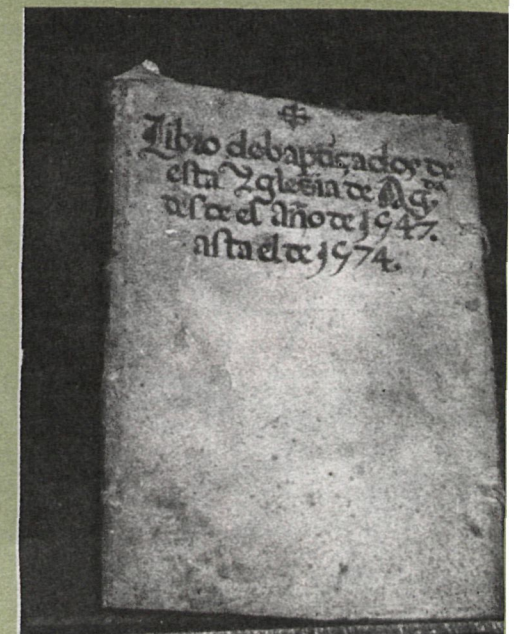 Libro de baptiçados de
esta Yglesia de Ag.na
desde el Año de 1547.
asta el de 1574.